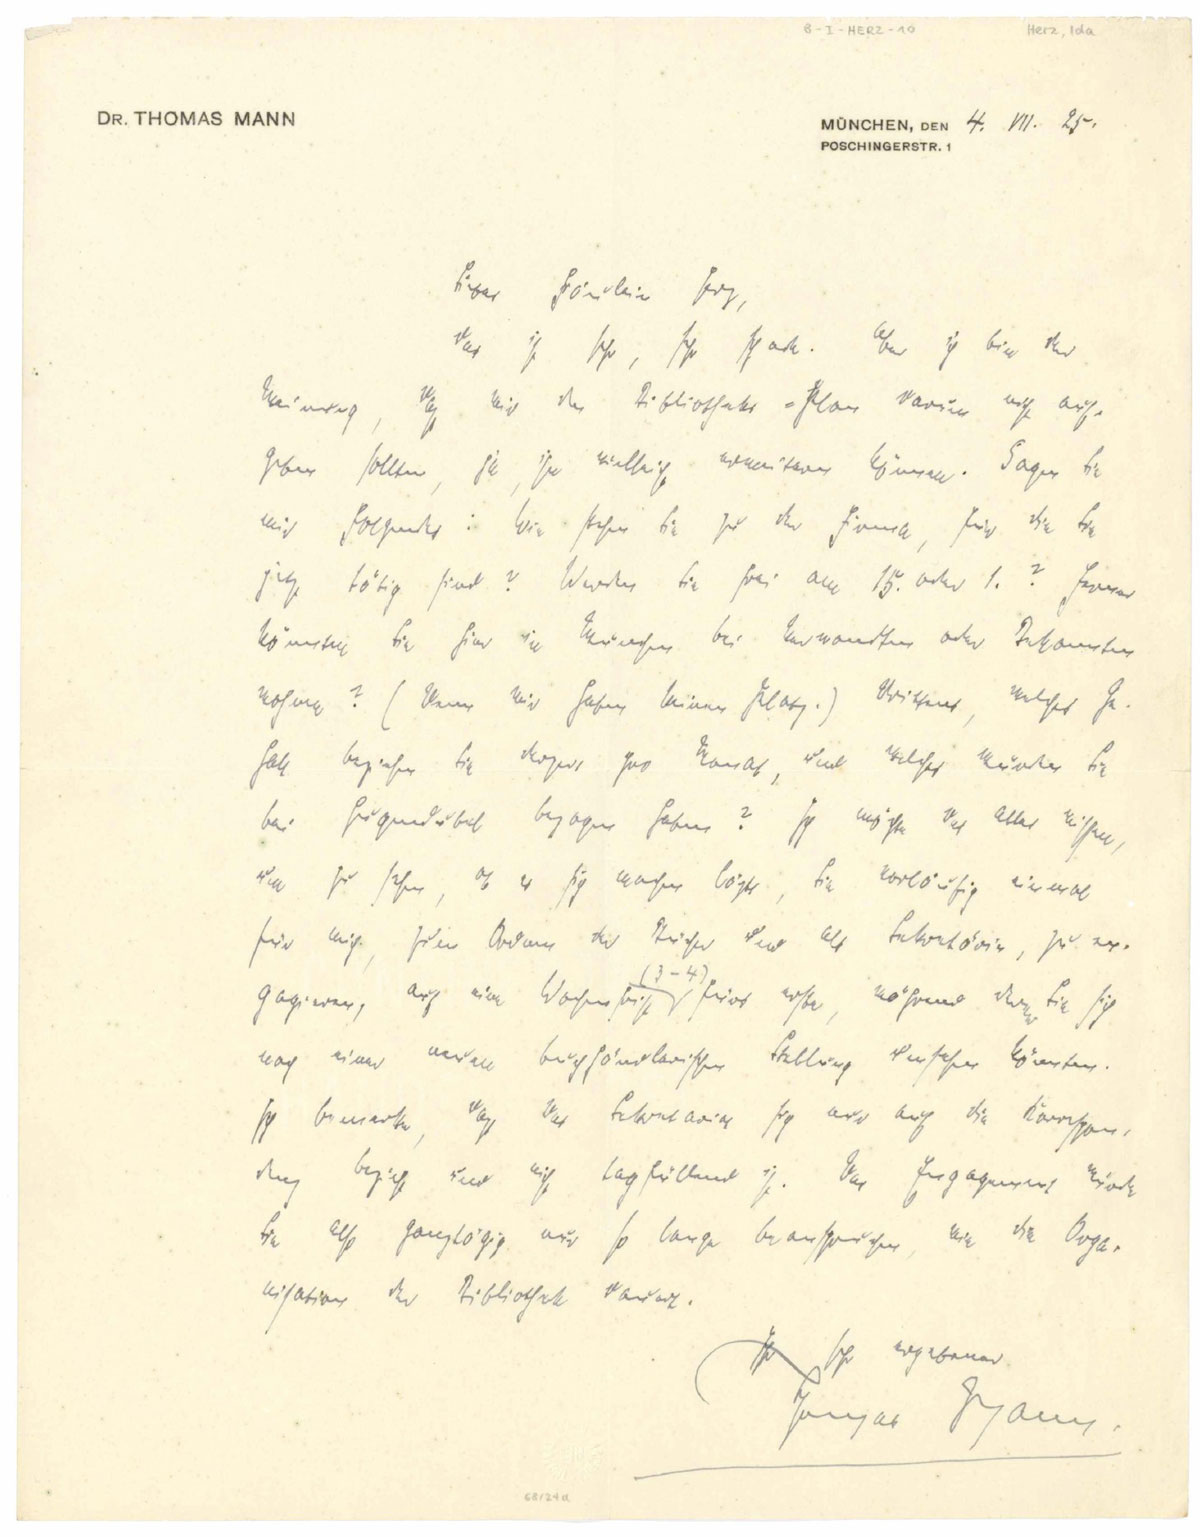 B-I-HERZ-10
Herz, Ida
DR. THOMAS MANN
MÜNCHEN, DEN 4. VII. 25.
POSCHINGERSTR. 1
Liebes Fräulein Herz,
das ist sehr, sehr schade. Aber ich bin der
Meinung, daß wir den Bibliotheks-Plan darum nicht auf-
geben sollten, ja, ihn vielleicht erweitern können. Sagen Sie
mir Folgendes: Wie stehen Sie zu der Firma, für die Sie
jetzt tätig sind? Werden Sie frei am 15. oder 1.? Ferner
könnten Sie hier in München bei Verwandten oder Bekannten
wohnen? (Denn wir haben keinen Platz.) Drittens, welches Ge-
halt beziehen Sie derzeit pro Monat, und welches würden Sie
bei Hugendubel bezogen haben? Ich möchte das alles wissen,
um zu sehen, ob es sich machen läßt, Sie vorläufig einmal
für mich, zum Ordnen der Bücher und als Sekretärin, zu en-
gagieren, auf eine Wochenfrist (3-4) fürs erste, während deren Sie sich
nach einer neuen buchhändlerischen Stellung umsehen könnten.
Ich bemerke, daß das Sekretariat sich nur auf die Korrespon-
denz bezieht und nicht tagfüllend ist. Das Engagement würde
Sie also ganztägig nur so lange beanspruchen, wie die Orga-
nisation der Bibliothek dauert.
Ihr sehr ergebener
Thomas Mann.
68/24a